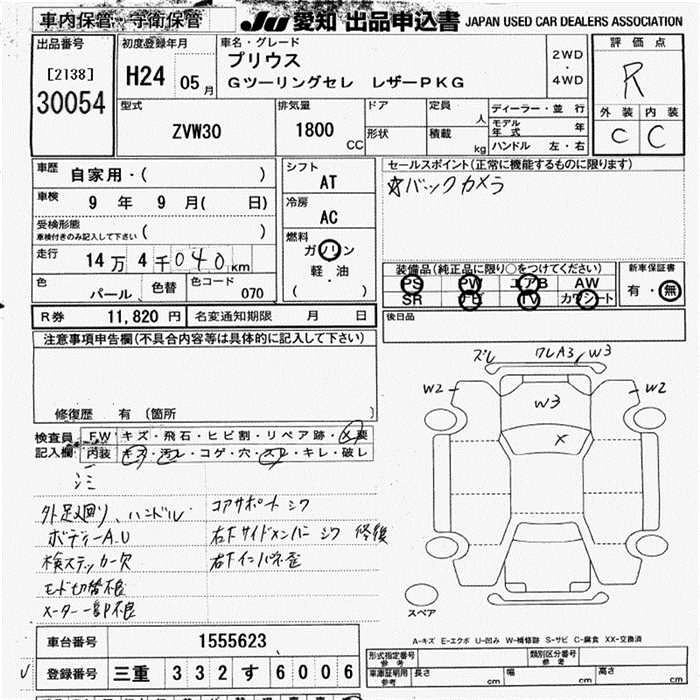 車内保管・守衛保管 JU 愛知 出品申込書 JAPAN USED CAR DEALERS ASSOCIATION
出品番号 初度登録年月 車名・グレード 評価点
[2138] H24 05月 プリウス 2WD
30054 Gツーリングセレ レザーPKG 4WD R
型式 排気量 ドア 定員 人 ディーラー・並 行 外装 内装
ZVW30 1800 CC 形状 積載 kg モデル年式 年 C C
ハンドル 左・右
車歴 自家用・( ) シフト AT セールスポイント(正常に機能するものに限ります)
車検 9 年 9 月( 日) 冷房 AC ☆バックカメラ
受検形態 ( )
車検付きのみ記入して下さい
燃料 ガソリン
軽・油
( ・ )
走行 14万 4千040 km
色 パール 色替 色コード 070
装備品(純正品に限り○をつけてください) 新車保証書
PS PW エアB AW 有・無
SR ナビ TV カワシート
R券 11,820 円 名変通知期限 月 日 後日品
注意事項申告欄(不具合内容等は具体的に記入して下さい)
修復歴 有 (箇所 )
検査員 FW キズ・飛石・ヒビ割・リペア跡・X要
記入欄 内装 キズ・汚レ・コゲ・穴・スレ・キレ・破レ
ズレ ワレA3 W3
W2 W2
W3
X
スペア
外足廻り、ハンドル
コアサポートシワ
ボディーA.U
右下サイドメンバーシワ 修後
検ステッカー欠
右下インパネ歪
モード切替不良
メーター一部不良
A-キズ E-エクボ U-凹み W-補修跡 S-サビ C-腐食 XX-交換済
車台番号 1555623 形式指定番号 参考 類別区分番号 参考
登録番号 三重 332 す 6006 車庫証明用 参考 長さ cm 幅 cm 高さ cm